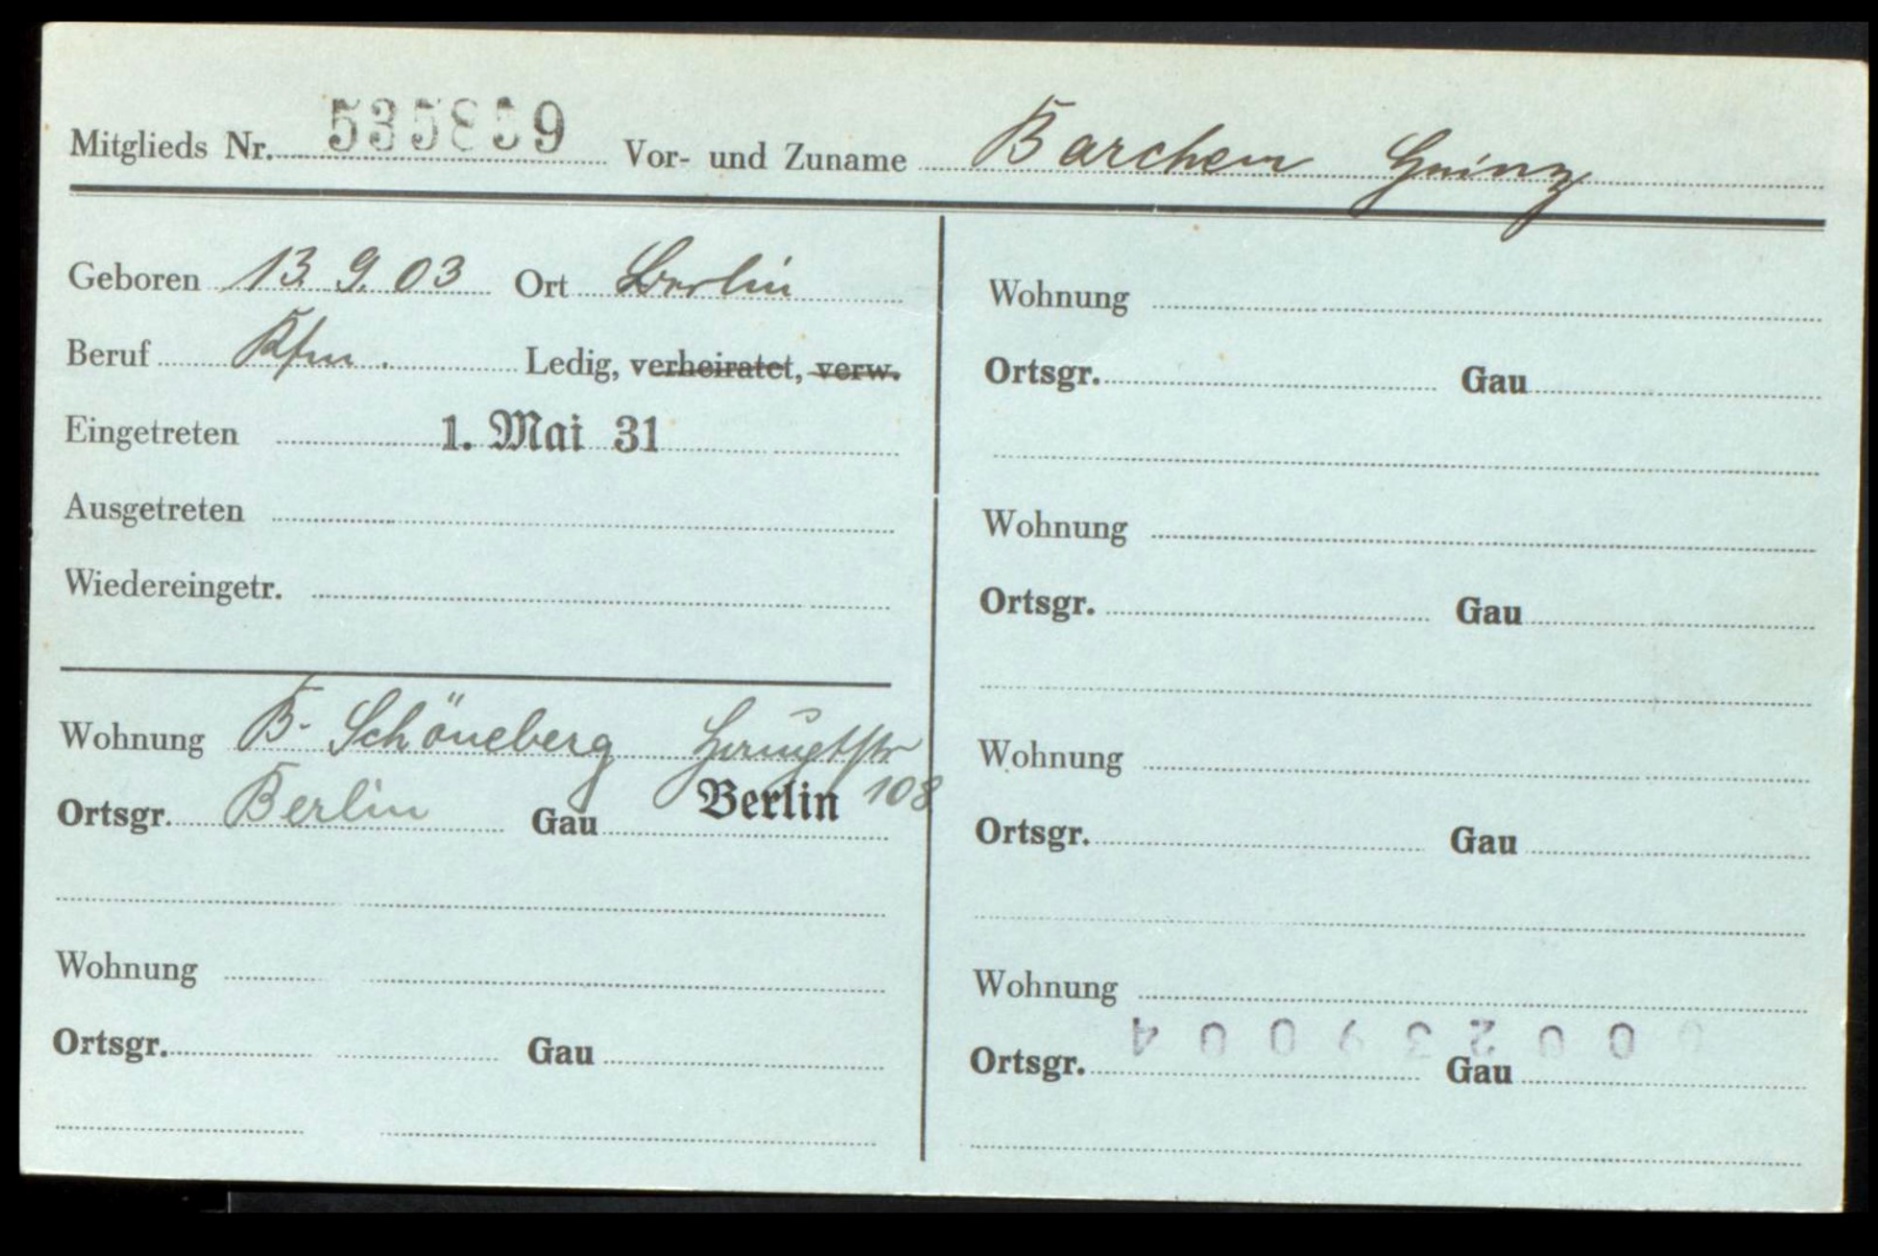 Mitglieds Nr. 535859 Vor- und Zuname Barchem Heinz
Geboren 13. 9. 03 Ort Berlin
Beruf Kfm. Ledig, verheiratet, verw.
Eingetreten 1. Mai 31
Ausgetreten
Wiedereingetr.
Wohnung B.- Schöneberg Hauptstr
108
Ortsgr. Berlin Gau Berlin
Wohnung
Ortsgr. Gau
Wohnung
Ortsgr. Gau
Wohnung
Ortsgr. Gau
Wohnung
Ortsgr. Gau
Wohnung
Ortsgr. Gau